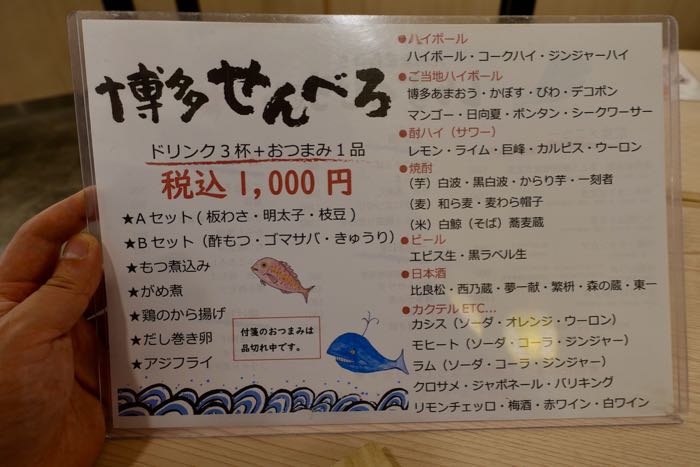 博多せんべろ
ドリンク3杯+おつまみ1品
税込1,000円
★Aセット(板わさ・明太子・枝豆)
★Bセット(酢もつ・ゴマサバ・きゅうり)
★もつ煮込み
★がめ煮
★鶏のから揚げ
★だし巻き卵
★アジフライ
付箋のおつまみは
品切れ中です。
●ハイボール
ハイボール・コークハイ・ジンジャーハイ
●ご当地ハイボール
博多あまおう・かぼす・びわ・デコポン
マンゴー・日向夏・ボンタン・シークワーサー
●酎ハイ(サワー)
レモン・ライム・巨峰・カルピス・ウーロン
●焼酎
(芋)白波・黒白波・からり芋・一刻者
(麦)和ら麦・麦わら帽子
(米)白鯨(そば)蕎麦蔵
●ビール
エビス生・黒ラベル生
●日本酒
比良松・西乃蔵・夢一献・繁枡・森の蔵・東一
●カクテルETC...
カシス(ソーダ・オレンジ・ウーロン)
モヒート(ソーダ・コーラ・ジンジャー)
ラム(ソーダ・コーラ・ジンジャー)
クロサメ・ジャポネール・バリキング
リモンチェッロ・梅酒・赤ワイン・白ワイン